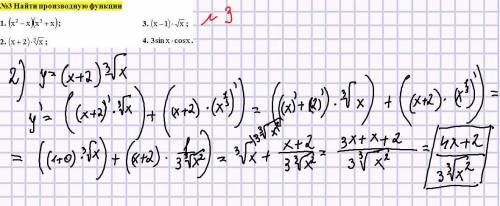 №3 Найти производную функции
1. (x² − x)(x² + x);
3. (x − 1)·√x;
2. (x + 2)·∛x;
4. 3sin x · cos x.
N 3
2) y = (x+2) ∛x
y' = ((x+2)' · ∛x) + ((x+2) · (x^⅓)') = ((x)' + (2)') · ∛x) + ((x+2) · (x^⅓)') =
= ((1+0) · ∛x) + (x+2) · 1/(3∛x²)) = ∛x + (x+2)/(3∛x²) = (3x+x+2)/(3∛x²) = (4x+2)/(3∛x²)